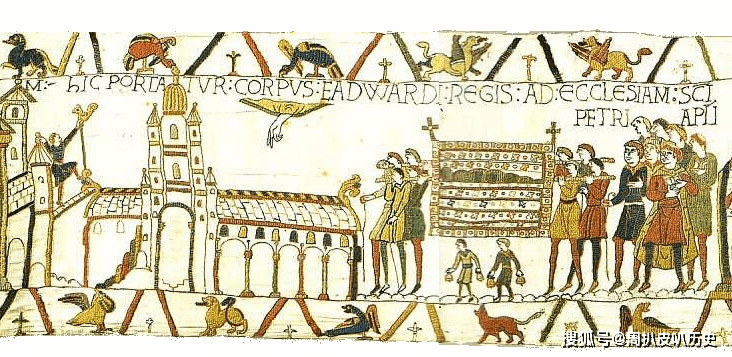 M: hIC PORTATVR: CORPVS: EADWARDI: REGIS: AD: ECCLESIAM: SCI
PETRI APLI
搜狐号@周扒皮叭历史